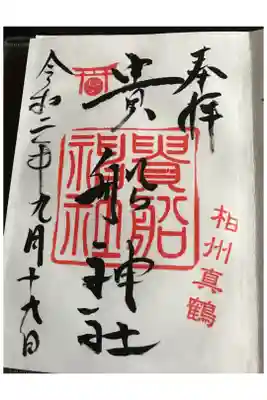 奉拝
相州真鶴
貴船神社
貴船神社
令和二年九月十九日